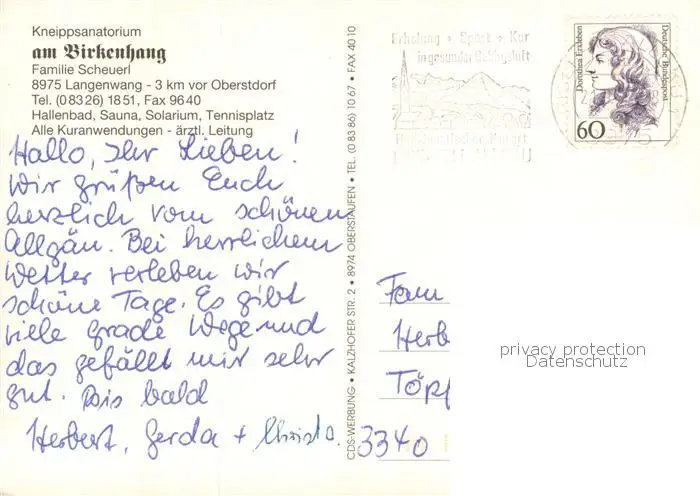 Kneippsanatorium
am Birkenhang
Familie Scheuerl
8975 Langenwang - 3 km vor Oberstdorf
Tel. (0 83 26) 18 51, Fax 96 40
Hallenbad, Sauna, Solarium, Tennisplatz
Alle Kuranwendungen - ärztl. Leitung
Hallo, Ihr Lieben!
Wir grüßen Euch
herzlich vom schönen
Allgäu. Bei herrlichem
Wetter verleben wir
schöne Tage. Es gibt
viele grade Wege und
das gefällt mir sehr
gut. Bis bald
Herbert, Gerda + Christa.
CDS-WERBUNG • KALZHOFER STR. 2 • 8974 OBERSTAUFEN • TEL. (0 83 86) 10 67 • FAX 40 10
Erholung • Sport • Kur
in gesunder Gebirgsluft
Dorothea Erxleben
Deutsche Bundespost
60
Fam
Herb
Töpf
3340
privacy protection
Datenschutz